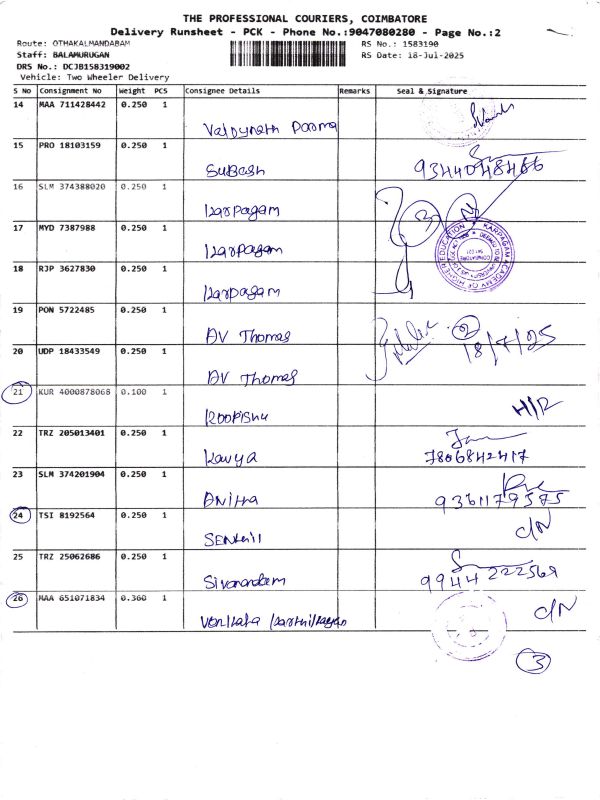 THE PROFESSIONAL COURIERS, COIMBATORE
Delivery Runsheet - PCK - Phone No.:9047080280 - Page No.:2
Route: OTHAKALMANDABAM RS No.: 1583190
Staff: BALAMURUGAN RS Date: 18-Jul-2025
DRS No.: DCJB158319002
Vehicle: Two Wheeler Delivery
S No Consignment No Weight PCS Consignee Details Remarks Seal & Signature
14 MAA 711428442 0.250 1
15 PRO 18103159 0.250 1
Subash 9344048466
16 SLM 374388020 0.250 1
Karpagam 3
17 MYD 7387988 0.250 1
Karpagam
18 RJP 3627830 0.250 1
Karpagam
19 PON 5722485 0.250 1
AV Thomas 2
18/7/25
20 UDP 18433549 0.250 1
AV Thomas
21 KUR 4000878068 0.100 1
H/R
22 TRZ 205013401 0.250 1
Kavya 7806842417
23 SLM 374201904 0.250 1
Anitha 9361179575
24 TSI 8192564 0.250 1
Senthil C/N
25 TRZ 25062686 0.250 1
Sivanandam 9944222569
26 MAA 651071834 0.360 1
C/N
3